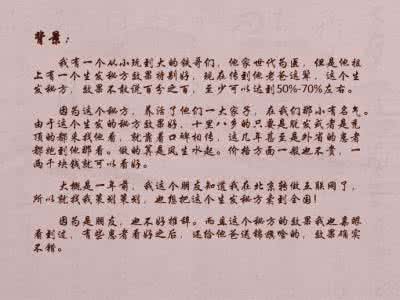 背景：
我有一个从小玩到大的铁哥们，他家世代为医，但是他祖
上有一个生发秘方效果特别好，现在传到他老爸这辈，这个生
发秘方，效果不敢说百分之百，至少可以达到50%-70%左右。
因为这个秘方，养活了他们一大家子，在我们那小有名气。
由于这个生发的秘方效果好，十里八乡的只要是脱发或者是秃
顶的都来找他看，就靠着口碑相传，这几年甚至是外省的患者
都跑到他那看。做的算是风生水起。价格方面一般也不贵，一
两千块钱就可以看好。
大概是一年前，我这个朋友知道我在北京转做互联网了，
所以就找我策划策划，也想把这个生发秘方卖到全国！
因为是朋友，也不好推辞。而且这个秘方的效果我也亲眼
看到过，有些患者看好之后，送给他爸送锦旗啥的，效果确实
不错。